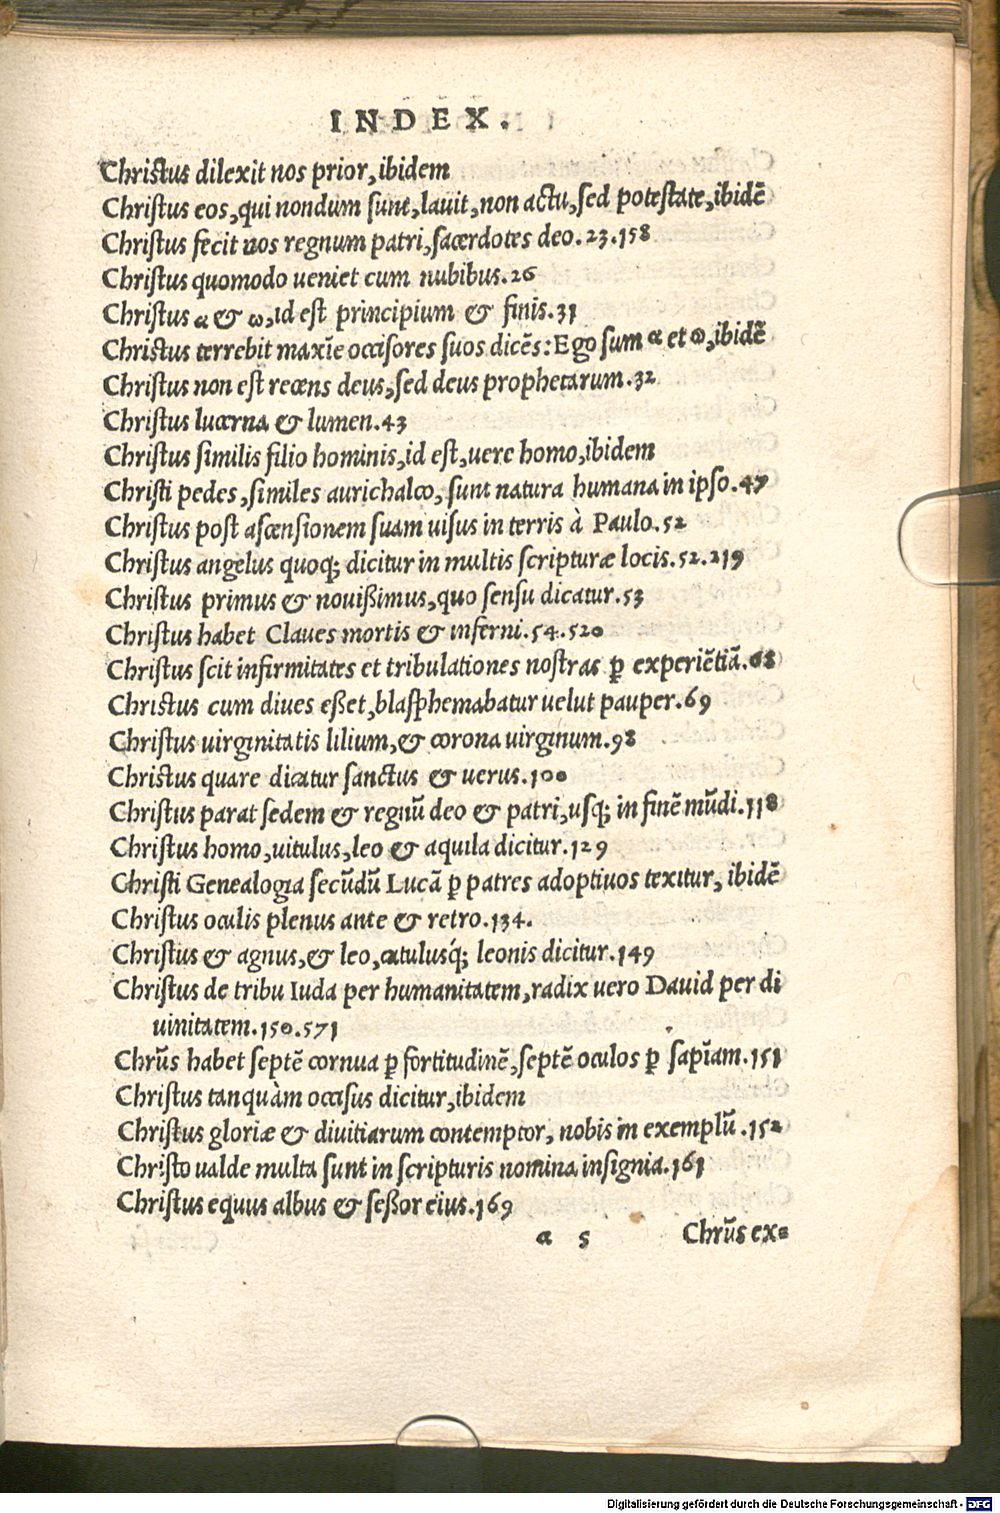 INDEX.
Christus dilexit nos prior, ibidem
Christus eos, qui nondum sunt, lauit, non actu, sed potestate, ibidẽ
Christus fecit nos regnum patri, sacerdotes deo. 23. 158
Christus quomodo ueniet cum nubibus. 26
Christus α & ω, id est principium & finis. 31
Christus terrebit maxĩe occisores suos dicẽs: Ego sum α et ω, ibidẽ
Christus non est recens deus, sed deus prophetarum. 32
Christus lucerna & lumen. 43
Christus similis filio hominis, id est, uere homo, ibidem
Christi pedes, similes aurichalco, sunt natura humana in ipso. 47
Christus post ascensionem suam uisus in terris à Paulo. 52
Christus angelus quoq; dicitur in multis scripturæ locis. 52. 219
Christus primus & nouißimus, quo sensu dicatur. 53
Christus habet Claues mortis & inferni. 54. 520
Christus scit infirmitates et tribulationes nostras ꝑ experiẽtiã. 68
Christus cum diues eßet, blasphemabatur uelut pauper. 69
Christus uirginitatis lilium, & corona uirginum. 98
Christus quare dicatur sanctus & uerus. 100
Christus parat sedem & regnũ deo & patri, usq; in finẽ mũdi. 118
Christus homo, uitulus, leo & aquila dicitur. 129
Christi Genealogia secũdũ Lucã ꝑ patres adoptiuos texitur, ibidẽ
Christus oculis plenus ante & retro. 134.
Christus & agnus, & leo, catulusq́; leonis dicitur. 149
Christus de tribu Iuda per humanitatem, radix uero Dauid per di
uinitatem. 150. 571
Chrũs habet septẽ cornua ꝑ fortitudinẽ, septẽ oculos ꝑ sapĩam. 151
Christus tanquàm occisus dicitur, ibidem
Christus gloriæ & diuitiarum contemptor, nobis in exemplũ. 152
Christo ualde multa sunt in scripturis nomina insignia. 161
Christus equus albus & seßor eius. 169
a 5 Chrũs ex=
Digitalisierung gefördert durch die Deutsche Forschungsgemeinschaft - DFG